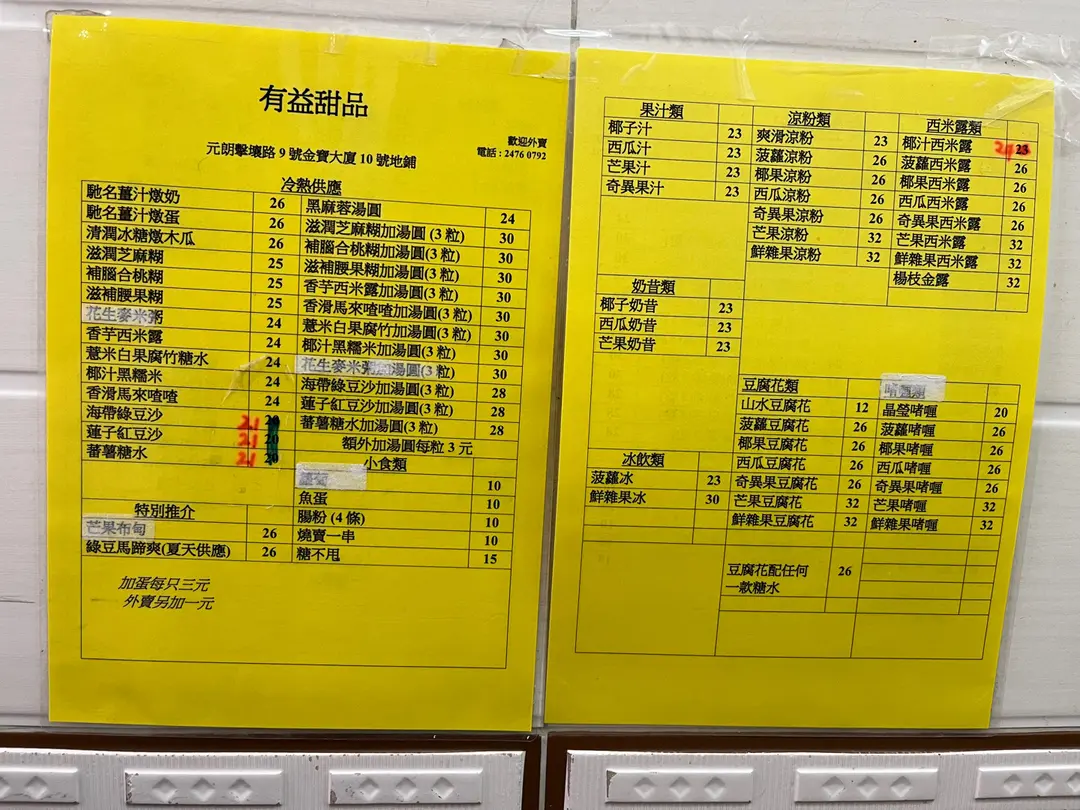 有益甜品
歡迎外賣
元朗擊壤路 9 號金寶大廈 10 號地鋪
電話 : 2476 0792
冷熱供應
馳名薑汁燉奶 26
馳名薑汁燉蛋 26
清潤冰糖燉木瓜 26
滋潤芝麻糊 25
補腦合桃糊 25
滋補腰果糊 25
花生麥米粥 24
香芋西米露 24
薏米白果腐竹糖水 24
椰汁黑糯米 24
香滑馬來喳喳 24
海帶綠豆沙 21 20
蓮子紅豆沙 21 20
蕃薯糖水 21 20
特別推介
芒果布甸 26
綠豆馬蹄爽(夏天供應) 26
黑麻蓉湯圓 24
滋潤芝麻糊加湯圓 (3 粒) 30
補腦合桃糊加湯圓(3 粒) 30
滋補腰果糊加湯圓(3 粒) 30
香芋西米露加湯圓(3 粒) 30
香滑馬來喳喳加湯圓(3 粒) 30
薏米白果腐竹加湯圓(3 粒) 30
椰汁黑糯米加湯圓(3 粒) 30
花生麥米粥加湯圓(3 粒) 30
海帶綠豆沙加湯圓(3 粒) 28
蓮子紅豆沙加湯圓(3 粒) 28
蕃薯糖水加湯圓(3 粒) 28
額外加湯圓每粒 3 元
小食類
10
魚蛋 10
腸粉 (4 條) 10
燒賣一串 10
糖不甩 15
加蛋每只三元
外賣另加一元
果汁類
椰子汁 23
西瓜汁 23
芒果汁 23
奇異果汁 23
奶昔類
椰子奶昔 23
西瓜奶昔 23
芒果奶昔 23
冰飲類
菠蘿冰 23
鮮雜果冰 30
涼粉類
爽滑涼粉 23
菠蘿涼粉 26
椰果涼粉 26
西瓜涼粉 26
奇異果涼粉 26
芒果涼粉 32
鮮雜果涼粉 32
西米露類
椰汁西米露 23
菠蘿西米露 26
椰果西米露 26
西瓜西米露 26
奇異果西米露 26
芒果西米露 32
鮮雜果西米露 32
楊枝金露 32
豆腐花類
山水豆腐花 12
菠蘿豆腐花 26
椰果豆腐花 26
西瓜豆腐花 26
奇異果豆腐花 26
芒果豆腐花 32
鮮雜果豆腐花 32
豆腐花配任何 26
一款糖水
啫喱類
晶瑩啫喱 20
菠蘿啫喱 26
椰果啫喱 26
西瓜啫喱 26
奇異果啫喱 26
芒果啫喱 32
鮮雜果啫喱 32